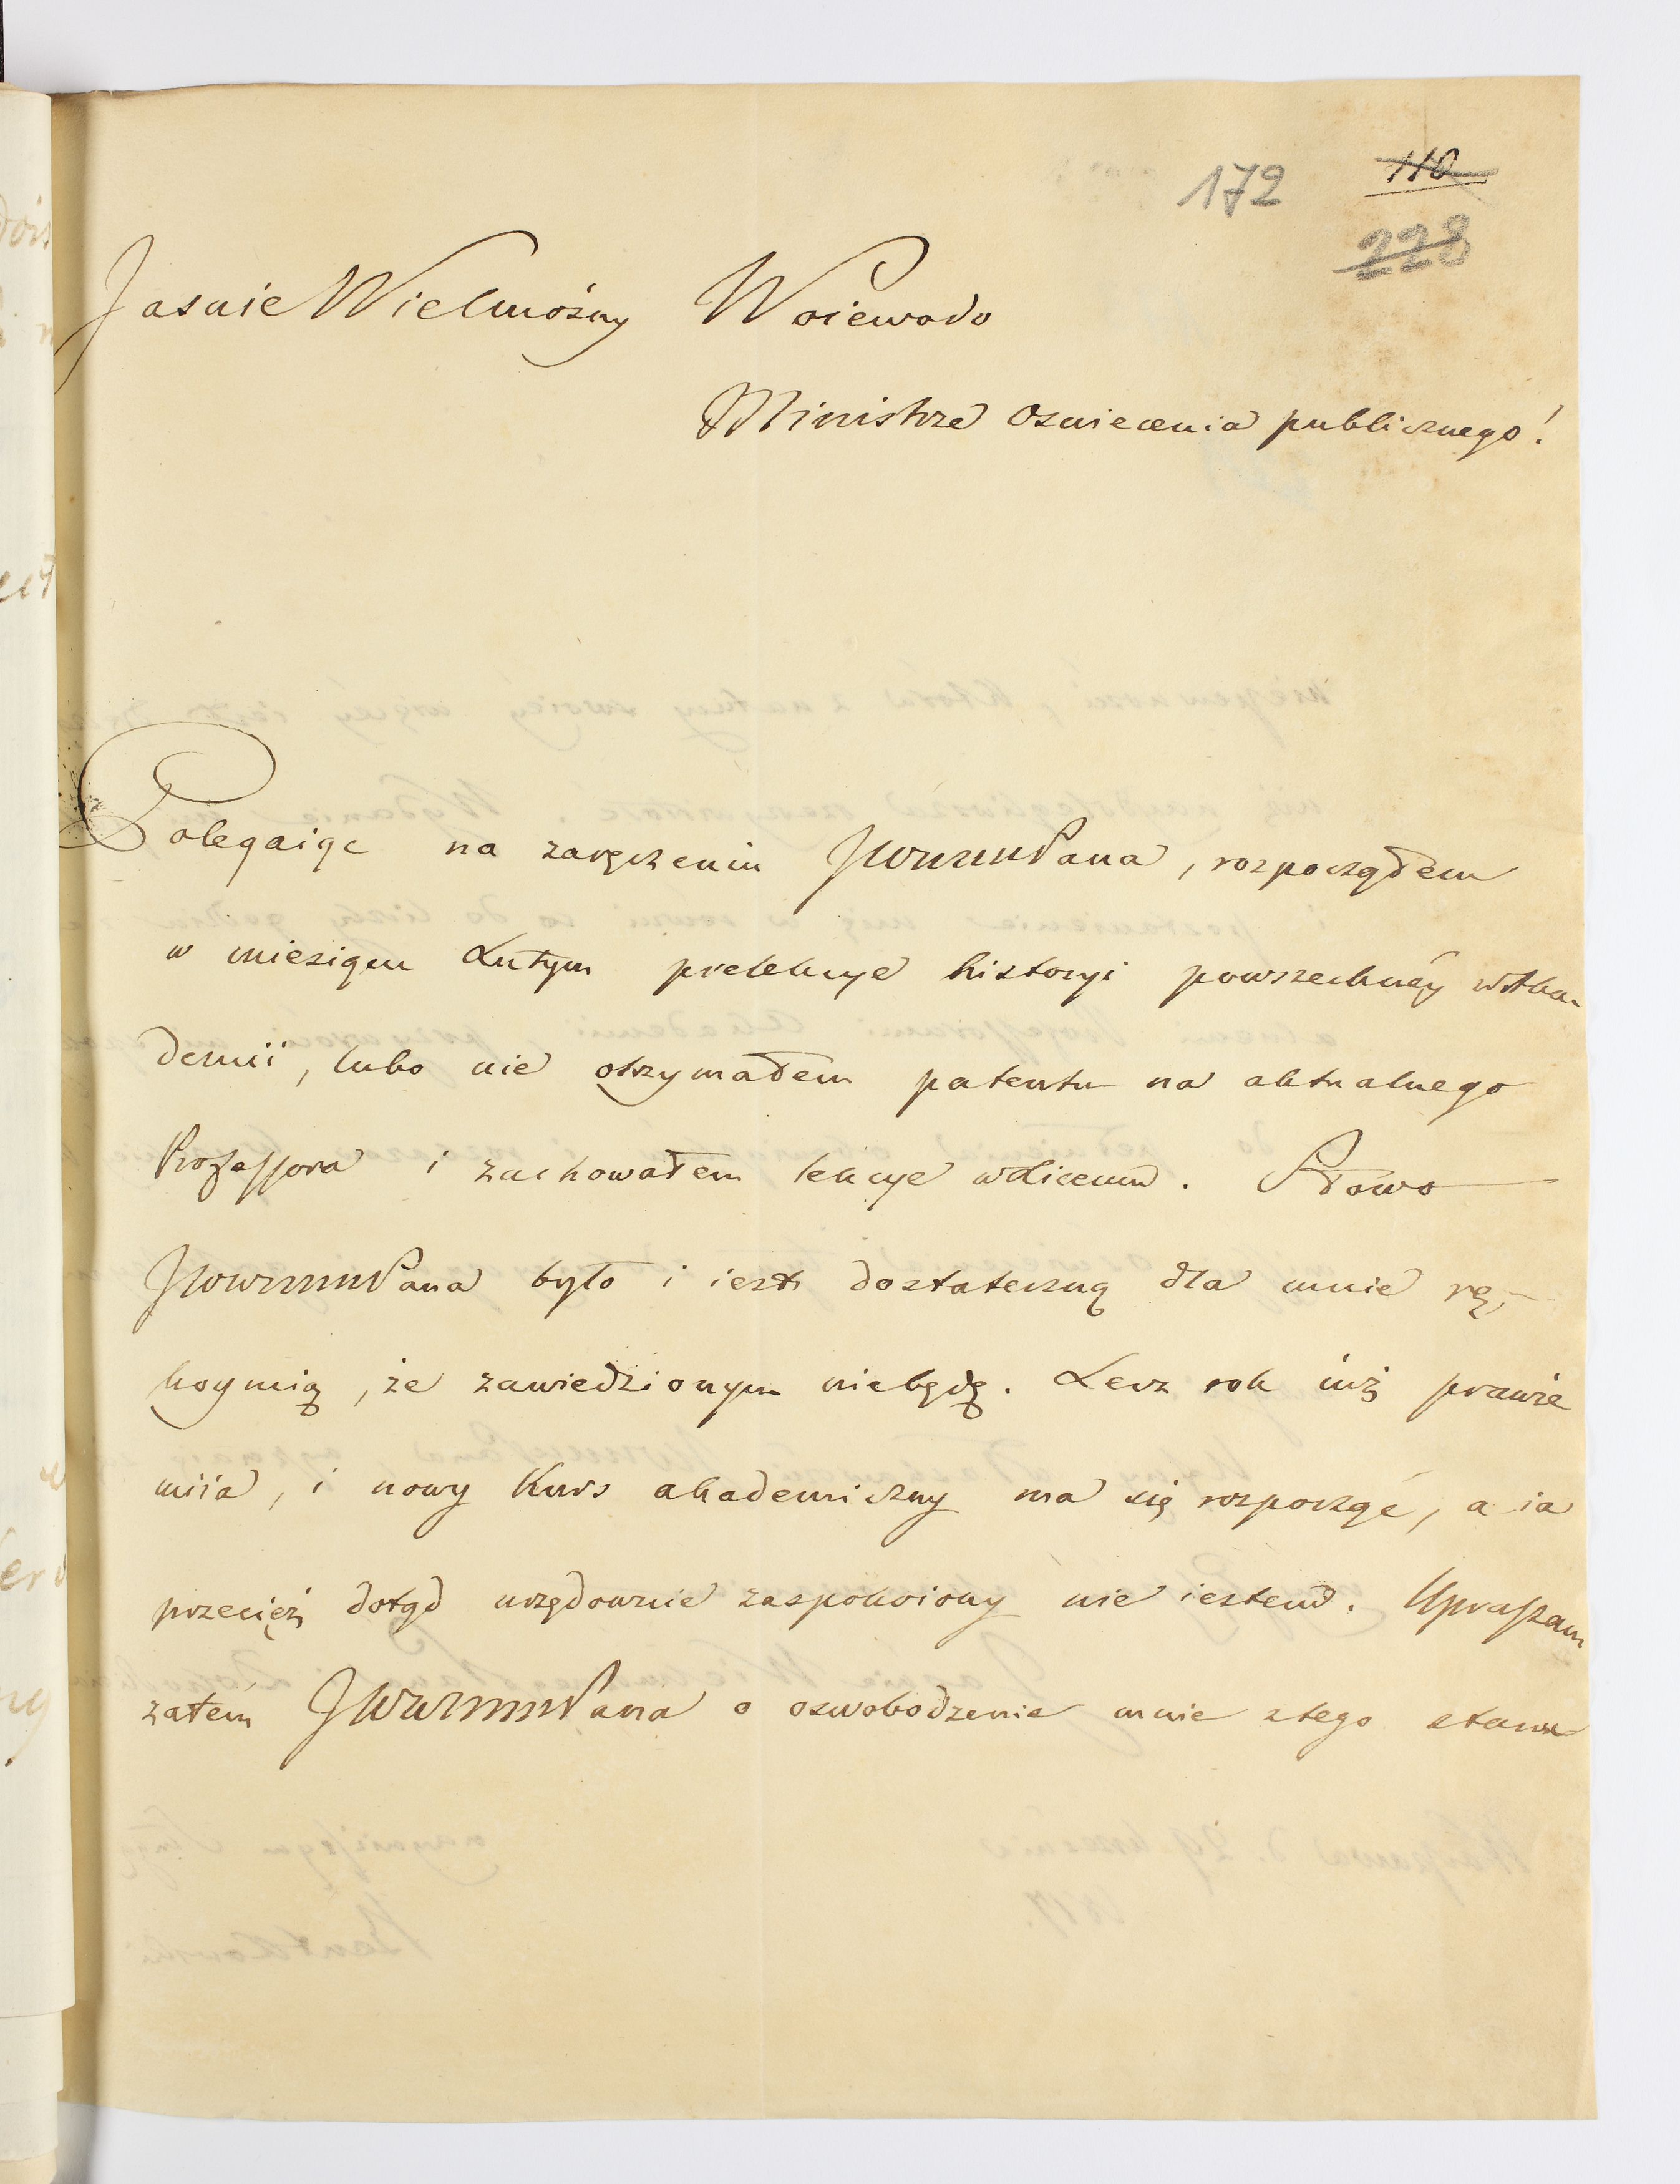 172 110
228
Jasnie Wielmożny Woiewodo
Ministrze Oswiecenia publicznego!
Polegaiąc na zaręczeniu JWWMMPana, rozpocząłem
w miesiącu Lutym prelekcye historyi powszechnéy w Aka-
demii, lubo nie otrzymałem patentu na aktualnego
Professora i zachowałem lekcye w Liceum. Słowo
JWWMMPana było i iest dostateczną dla mnie rę-
koymią, że zawiedzionym niebędę. Lecz rok iuż prawie
miia, i nowy Kurs akademiczny ma się rozpocząć, a ia
przecięż dotąd urzędownie zaspokoiony nie iestem. Upraszam
zatém JWWMMPana o oswobodzenie mnie z tego stanu